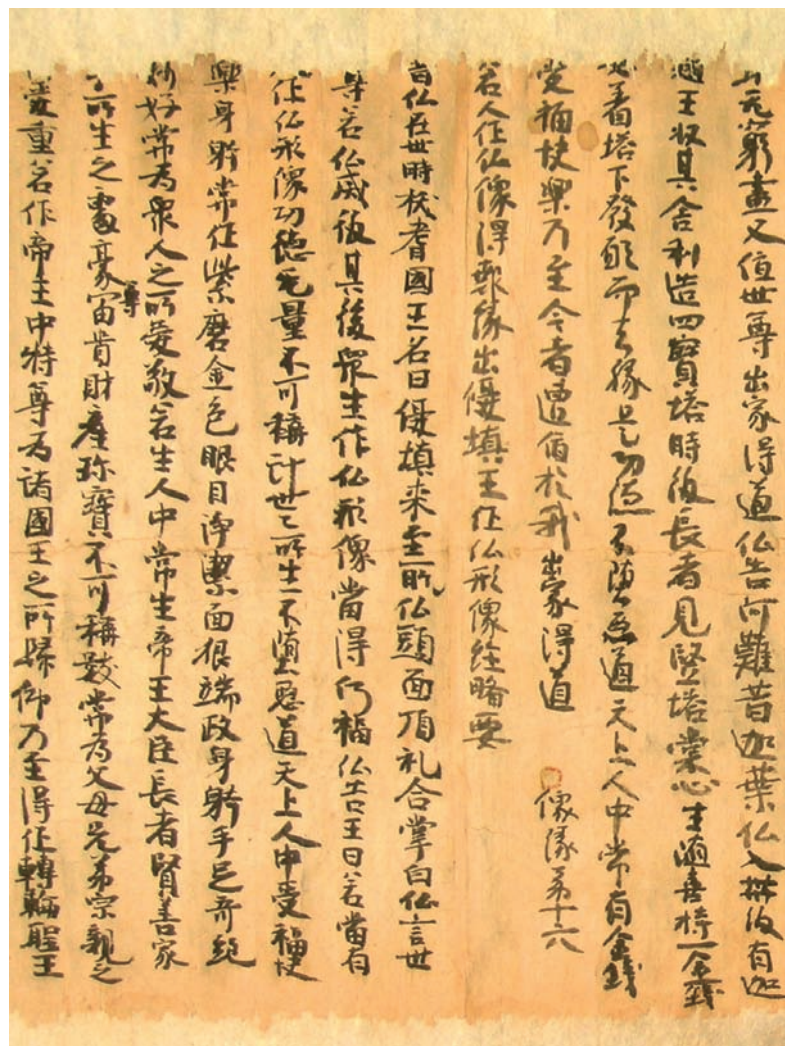 无窮盡又值世尊出家得道仏告阿難昔迦葉仏入涅槃後有迦
王收其舍利造四寳塔時彼長者見竪塔棠心生隨喜持一金錢
着塔下發願而去緣是功德不墮惡道天上人中常有金錢
受福快樂乃至今者遭值於我出家得道 像緣弟十六
若人作仏像得報緣出優填王作仏形像経略要
昔仏在世時拔耆國王名曰優填来至仏頭面頂礼合掌白仏言世
尊若仏滅後其後衆生作仏形像當得何福仏告王曰若當有
作仏形像功德无量不可稱計世〻所生不墮惡道天上人中受福快
樂身躰常作紫磨金色眼目浄潔面狠端政身躰手足奇絶
妙好常為衆人之所愛敬若生人中常生帝王大臣長者賢善家
所生之處豪尊富貴財産珎寳不可稱數常為父母兄弟宗親之
愛重若作帝王中特尊為諸國王之所歸仰乃至得作轉輪聖王